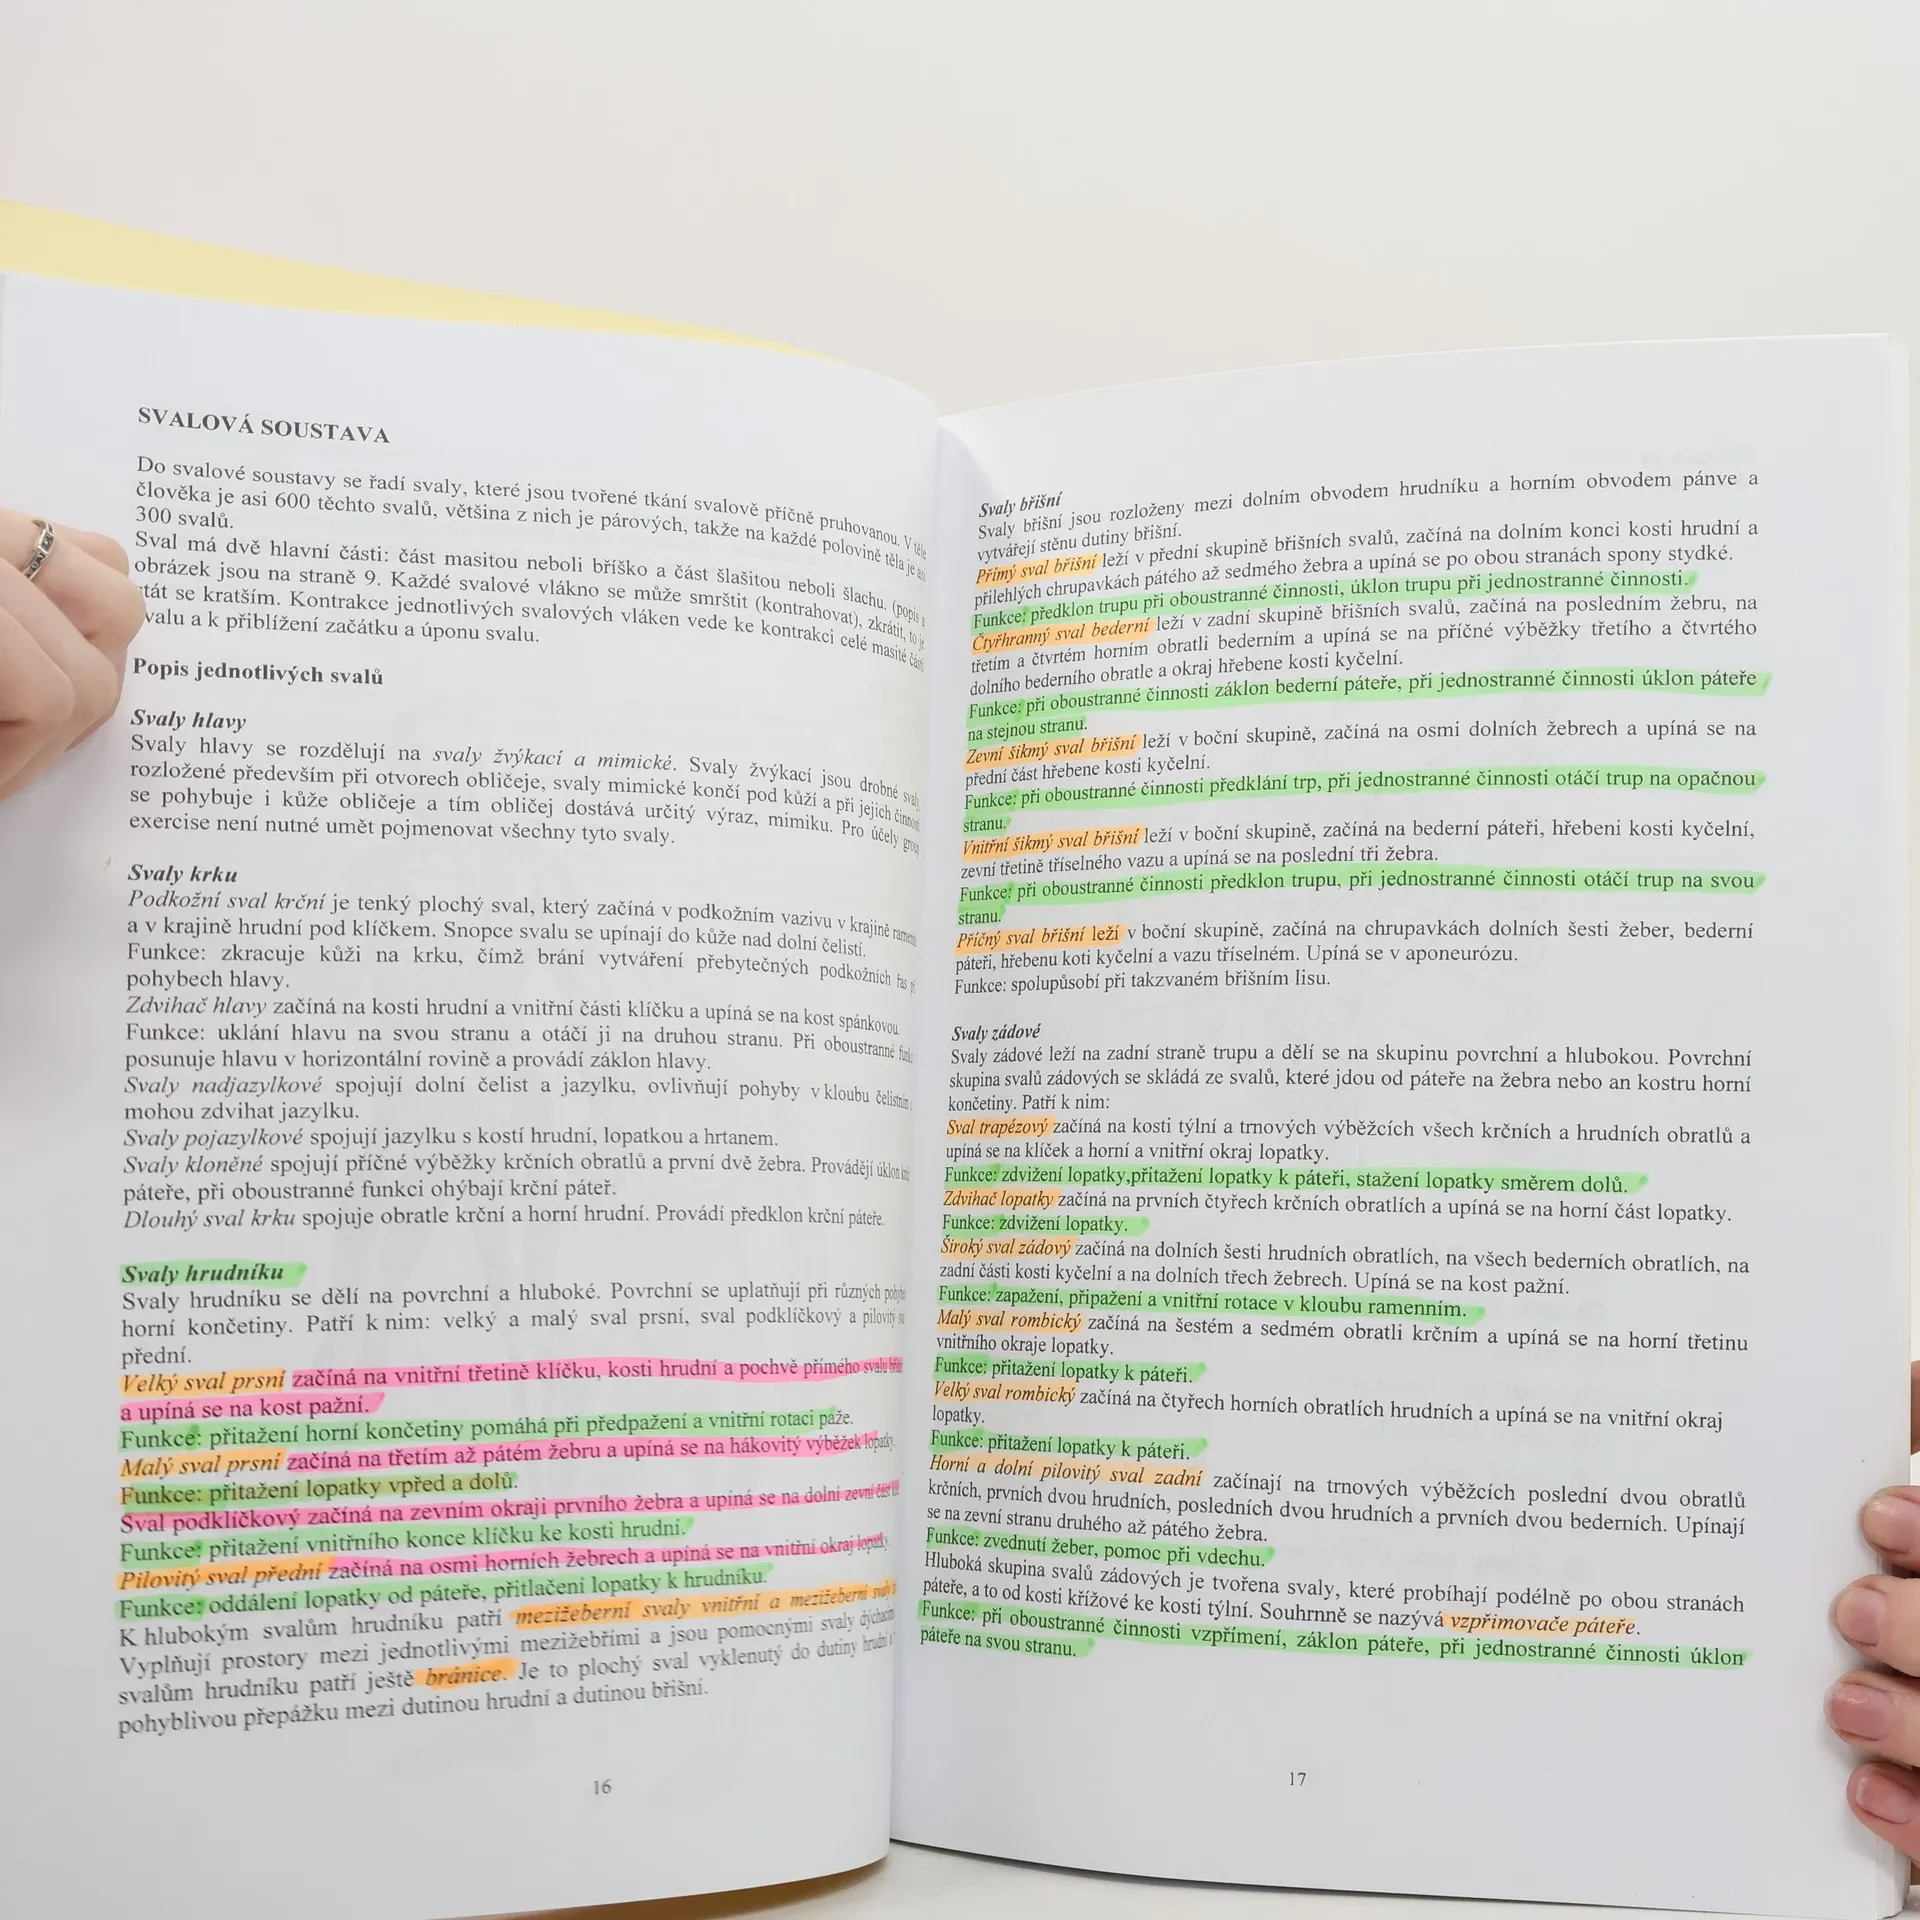 SVALOVÁ SOUSTAVA
Do svalové soustavy se řadí svaly, které jsou tvořené tkání svalově příčně pruhovanou. V těle
člověka je asi 600 těchto svalů, většina z nich je párových, takže na každé polovině těla je asi
300 svalů.
Sval má dvě hlavní části: část masitou neboli bříško a část šlašitou neboli šlachu. (popis a
obrázek jsou na straně 9. Každé svalové vlákno se může smrštit (kontrahovat), zkrátit, to je
stát se kratším. Kontrakce jednotlivých svalových vláken vede ke kontrakci celé masité části
svalu a k přiblížení začátku a úponu svalu.
Popis jednotlivých svalů
Svaly hlavy
Svaly hlavy se rozdělují na svaly žvýkací a mimické. Svaly žvýkací jsou drobné svaly
rozložené především při otvorech obličeje, svaly mimické končí pod kůží a při jejich činnosti
se pohybuje i kůže obličeje a tím obličej dostává určitý výraz, mimiku. Pro účely group
exercise není nutné umět pojmenovat všechny tyto svaly.
Svaly krku
Podkožní sval krční je tenký plochý sval, který začíná v podkožním vazivu v krajině ramenní
a v krajině hrudní pod klíčkem. Snopce svalu se upínají do kůže nad dolní čelistí.
Funkce: zkracuje kůži na krku, čímž brání vytváření přebytečných podkožních řas při
pohybech hlavy.
Zdvihač hlavy začíná na kosti hrudní a vnitřní části klíčku a upíná se na kost spánkovou.
Funkce: uklání hlavu na svou stranu a otáčí ji na druhou stranu. Při oboustranné
posunuje hlavu v horizontální rovině a provádí záklon hlavy.
Svaly nadjazylkové spojují dolní čelist a jazylku, ovlivňují pohyby v kloubu čelistním
mohou zdvihat jazylku.
Svaly pojazylkové spojují jazylku s kostí hrudní, lopatkou a hrtanem.
Svaly kloněné spojují příčné výběžky krčních obratlů a první dvě žebra. Provádějí úklon
páteře, při oboustranné funkci ohýbají krční páteř.
Dlouhý sval krku spojuje obratle krční a horní hrudní. Provádí předklon krční páteře.
Svaly hrudníku
Svaly hrudníku se dělí na povrchní a hluboké. Povrchní se uplatňují při různých
horní končetiny. Patří k nim: velký a malý sval prsní, sval podklíčkový a pilovitý
přední.
Velký sval prsní začíná na vnitřní třetině klíčku, kosti hrudní a pochvě přímého svalu
a upíná se na kost pažní.
Funkce: přitažení horní končetiny pomáhá při předpažení a vnitřní rotaci páže.
Malý sval prsní začíná na třetím až pátém žebru a upíná se na hákovitý výběžek lopatky.
Funkce: přitažení lopatky vpřed a dolů.
Sval podklíčkový začíná na zevním okraji prvního žebra a upíná se na dolní zevní část
Funkce: přitažení vnitřního konce klíčku ke kosti hrudní.
Pilovitý sval přední začíná na osmi horních žebrech a upíná se na vnitřní okraj lopatky.
Funkce: oddálení lopatky od páteře, přitlačení lopatky k hrudníku.
K hlubokým svalům hrudníku patří mezižeberní svaly vnitřní a mezižeberní svaly
Vyplňují prostory mezi jednotlivými mezižebřími a jsou pomocnými svaly dýchacími
svalům hrudníku patří ještě bránice. Je to plochý sval vyklenutý do dutiny hrudní
pohyblivou přepážku mezi dutinou hrudní a dutinou břišní.
16
Svaly břišní
Svaly břišní jsou rozloženy mezi dolním obvodem hrudníku a horním obvodem pánve a
vytvářejí stěnu dutiny břišní.
Přímý sval břišní leží v přední skupině břišních svalů, začíná na dolním konci kosti hrudní a
přilehlých chrupavkách pátého až sedmého žebra a upíná se po obou stranách spony stydké.
Funkce: předklon trupu při oboustranné činnosti, úklon trupu při jednostranné činnosti.
Čtyřhranný sval bederní leží v zadní skupině břišních svalů, začíná na posledním žebru, na
třetím a čtvrtém horním obratli bederním a upíná se na příčné výběžky třetího a čtvrtého
dolního bederního obratle a okraj hřebene kosti kyčelní.
Funkce: při oboustranné činnosti záklon bederní páteře, při jednostranné činnosti úklon páteře
na stejnou stranu.
Zevní šikmý sval břišní leží v boční skupině, začíná na osmi dolních žebrech a upíná se na
přední část hřebene kosti kyčelní.
Funkce: při oboustranné činnosti předklání trp, při jednostranné činnosti otáčí trup na opačnou
stranu.
Vnitřní šikmý sval břišní leží v boční skupině, začíná na bederní páteři, hřebeni kosti kyčelní,
zevní třetině tříselného vazu a upíná se na poslední tři žebra.
Funkce: při oboustranné činnosti předklon trupu, při jednostranné činnosti otáčí trup na svou
stranu.
Příčný sval břišní leží v boční skupině, začíná na chrupavkách dolních šesti žeber, bederní
páteři, hřebenu koti kyčelní a vazu tříselném. Upíná se v aponeurózu.
Funkce: spolupůsobí při takzvaném břišním lisu.
Svaly zádové
Svaly zádové leží na zadní straně trupu a dělí se na skupinu povrchní a hlubokou. Povrchní
skupina svalů zádových se skládá ze svalů, které jdou od páteře na žebra nebo an kostru horní
končetiny. Patří k nim:
Sval trapézový začíná na kosti týlní a trnových výběžcích všech krčních a hrudních obratlů a
upíná se na klíček a horní a vnitřní okraj lopatky.
Funkce: zdvižení lopatky,přitažení lopatky k páteři, stažení lopatky směrem dolů.
Zdvihač lopatky začíná na prvních čtyřech krčních obratlích a upíná se na horní část lopatky.
Funkce: zdvižení lopatky.
Široký sval zádový začíná na dolních šesti hrudních obratlích, na všech bederních obratlích, na
zadní části kosti kyčelní a na dolních třech žebrech. Upíná se na kost pažní.
Funkce: zapažení, připažení a vnitřní rotace v kloubu ramenním.
Malý sval rombický začíná na šestém a sedmém obratli krčním a upíná se na horní třetinu
vnitřního okraje lopatky.
Funkce: přitažení lopatky k páteři.
Velký sval rombický začíná na čtyřech horních obratlích hrudních a upíná se na vnitřní okraj
lopatky.
Funkce: přitažení lopatky k páteři.
Horní a dolní pilovitý sval zadní začínají na trnových výběžcích poslední dvou obratlů
krčních, prvních dvou hrudních, posledních dvou hrudních a prvních dvou bederních. Upínají
se na zevní stranu druhého až pátého žebra.
Funkce: zvednutí žeber, pomoc při vdechu.
Hluboká skupina svalů zádových je tvořena svaly, které probíhají podélně po obou stranách
páteře, a to od kosti křížové ke kosti týlní. Souhrnně se nazývá vzpřimovače páteře.
Funkce: při oboustranné činnosti vzpřímení, záklon páteře, při jednostranné činnosti úklon
páteře na svou stranu.
17